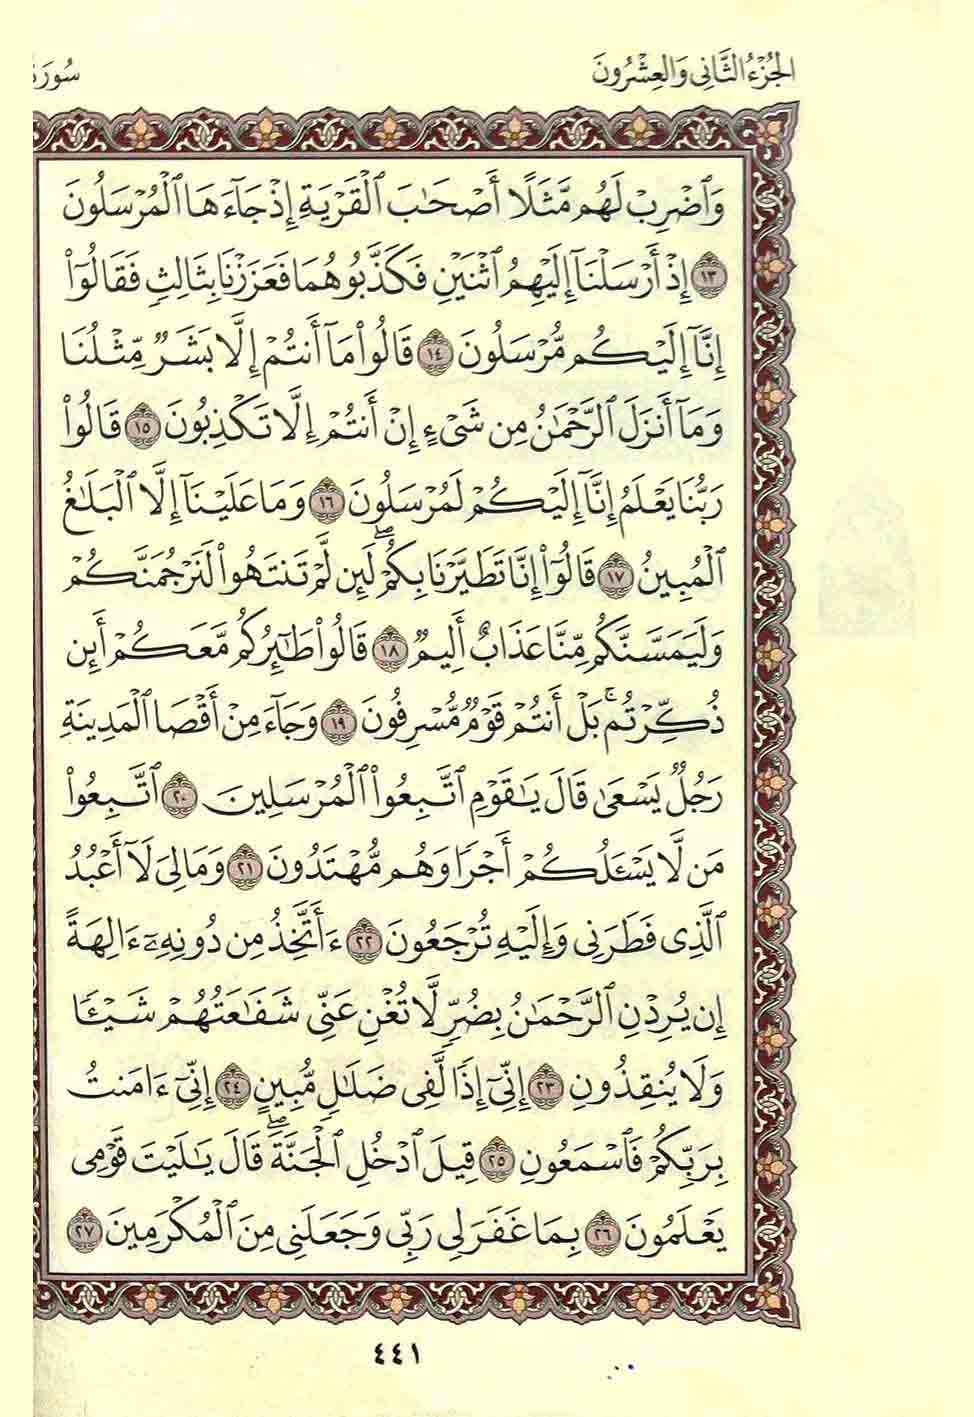 الجُزْءُ الثَّانِي وَالعِشْرُونَ
سُورَة
وَٱضْرِبْ لَهُم مَّثَلًا أَصْحَٰبَ ٱلْقَرْيَةِ إِذْ جَآءَهَا ٱلْمُرْسَلُونَ
١٣ إِذْ أَرْسَلْنَآ إِلَيْهِمُ ٱثْنَيْنِ فَكَذَّبُوهُمَا فَعَزَّزْنَا بِثَالِثٍ فَقَالُوٓا۟
إِنَّآ إِلَيْكُم مُّرْسَلُونَ ١٤ قَالُوا۟ مَآ أَنتُمْ إِلَّا بَشَرٌ مِّثْلُنَا
وَمَآ أَنزَلَ ٱلرَّحْمَٰنُ مِن شَىْءٍ إِنْ أَنتُمْ إِلَّا تَكْذِبُونَ ١٥ قَالُوا۟
رَبُّنَا يَعْلَمُ إِنَّآ إِلَيْكُمْ لَمُرْسَلُونَ ١٦ وَمَا عَلَيْنَآ إِلَّا ٱلْبَلَٰغُ
ٱلْمُبِينُ ١٧ قَالُوٓا۟ إِنَّا تَطَيَّرْنَا بِكُمْ ۖ لَئِن لَّمْ تَنتَهُوا۟ لَنَرْجُمَنَّكُمْ
وَلَيَمَسَّنَّكُم مِّنَّا عَذَابٌ أَلِيمٌ ١٨ قَالُوا۟ طَٰٓئِرُكُم مَّعَكُمْ أَئِن
ذُكِّرْتُم ۚ بَلْ أَنتُمْ قَوْمٌ مُّسْرِفُونَ ١٩ وَجَآءَ مِنْ أَقْصَا ٱلْمَدِينَةِ
رَجُلٌ يَسْعَىٰ قَالَ يَٰقَوْمِ ٱتَّبِعُوا۟ ٱلْمُرْسَلِينَ ٢٠ ٱتَّبِعُوا۟
مَن لَّا يَسْـَٔلُكُمْ أَجْرًا وَهُم مُّهْتَدُونَ ٢١ وَمَا لِىَ لَآ أَعْبُدُ
ٱلَّذِى فَطَرَنِى وَإِلَيْهِ تُرْجَعُونَ ٢٢ ءَأَتَّخِذُ مِن دُونِهِۦٓ ءَالِهَةً
إِن يُرِدْنِ ٱلرَّحْمَٰنُ بِضُرٍّ لَّا تُغْنِ عَنِّى شَفَٰعَتُهُمْ شَيْـًٔا
وَلَا يُنقِذُونِ ٢٣ إِنِّىٓ إِذًا لَّفِى ضَلَٰلٍ مُّبِينٍ ٢٤ إِنِّىٓ ءَامَنتُ
بِرَبِّكُمْ فَٱسْمَعُونِ ٢٥ قِيلَ ٱدْخُلِ ٱلْجَنَّةَ ۖ قَالَ يَٰلَيْتَ قَوْمِى
يَعْلَمُونَ ٢٦ بِمَا غَفَرَ لِى رَبِّى وَجَعَلَنِى مِنَ ٱلْمُكْرَمِينَ ٢٧
٤٤١